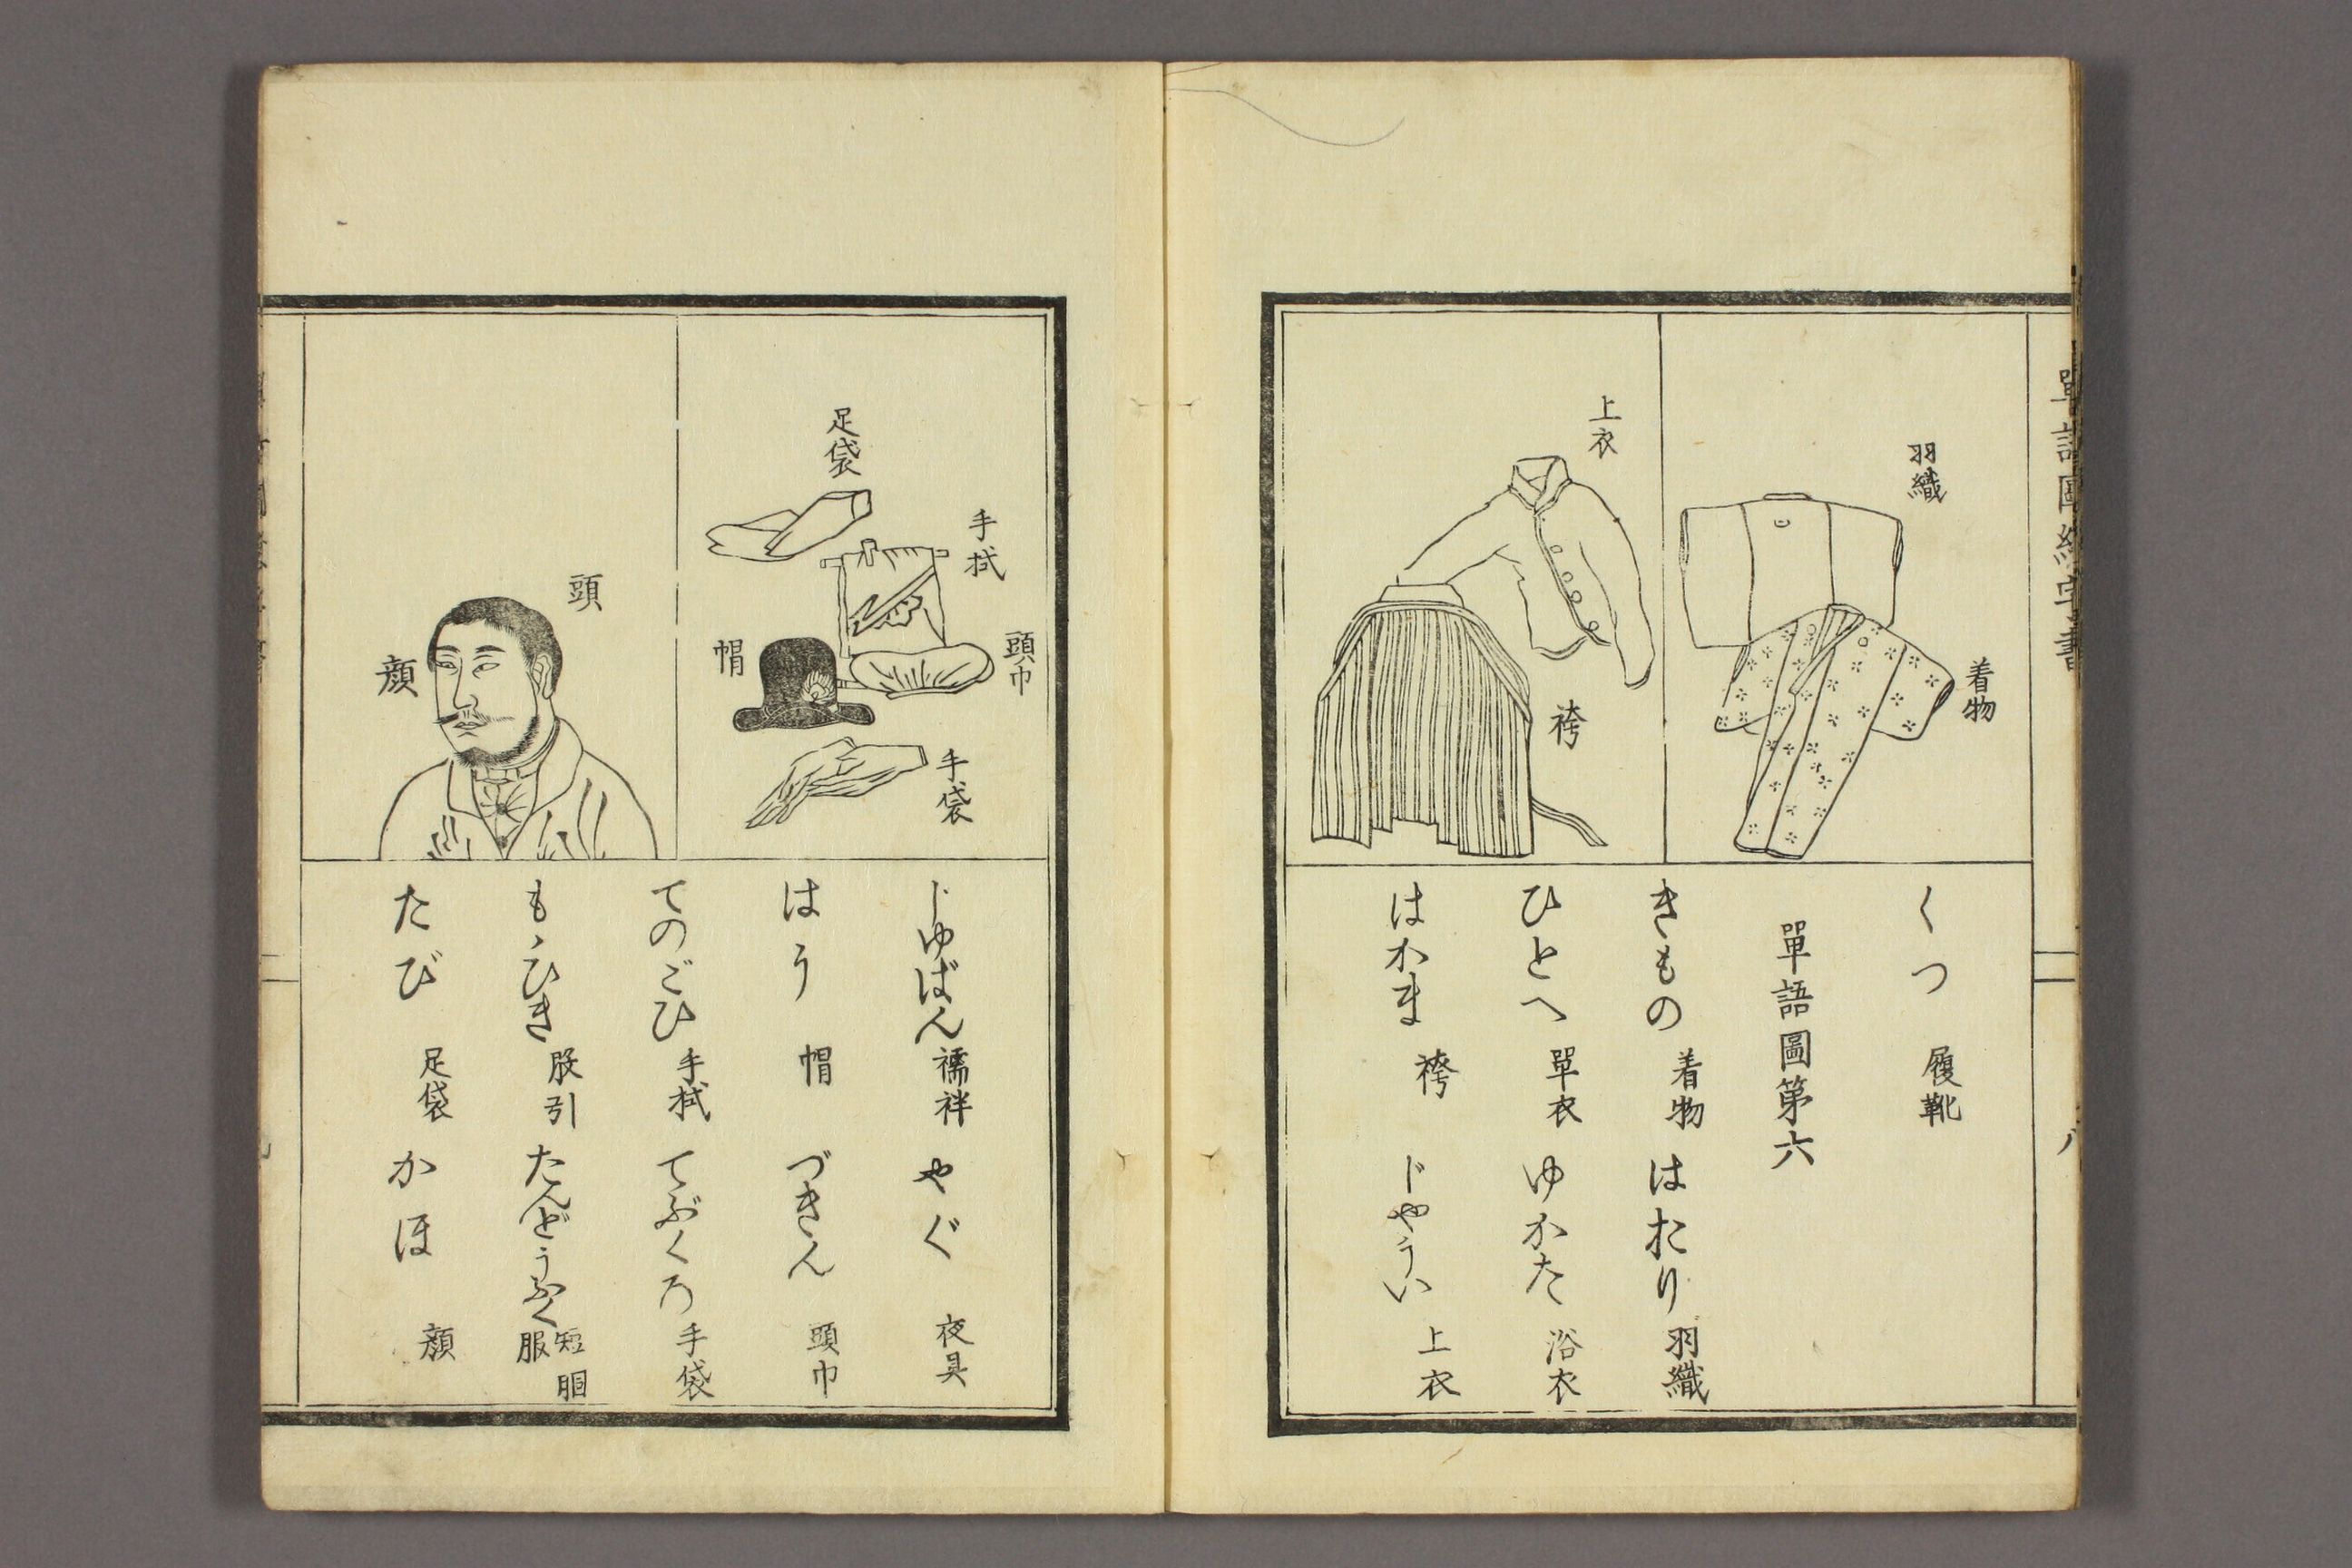 單語圖繪字書
羽織
着物
上衣
袴
くつ 履靴
單語圖第六
きもの 着物 はおり 羽織
ひとへ 單衣 ゆかた 浴衣
はかま 袴 じやうい 上衣
手拭
頭巾
足袋
帽
手袋
頭
顔
じゆばん 襦袢 やぐ 夜具
はう 帽 づきん 頭巾
てのごひ 手拭 てぶくろ 手袋
もゝひき 股引 たんどうふく 短胴服
たび 足袋 かほ 顔